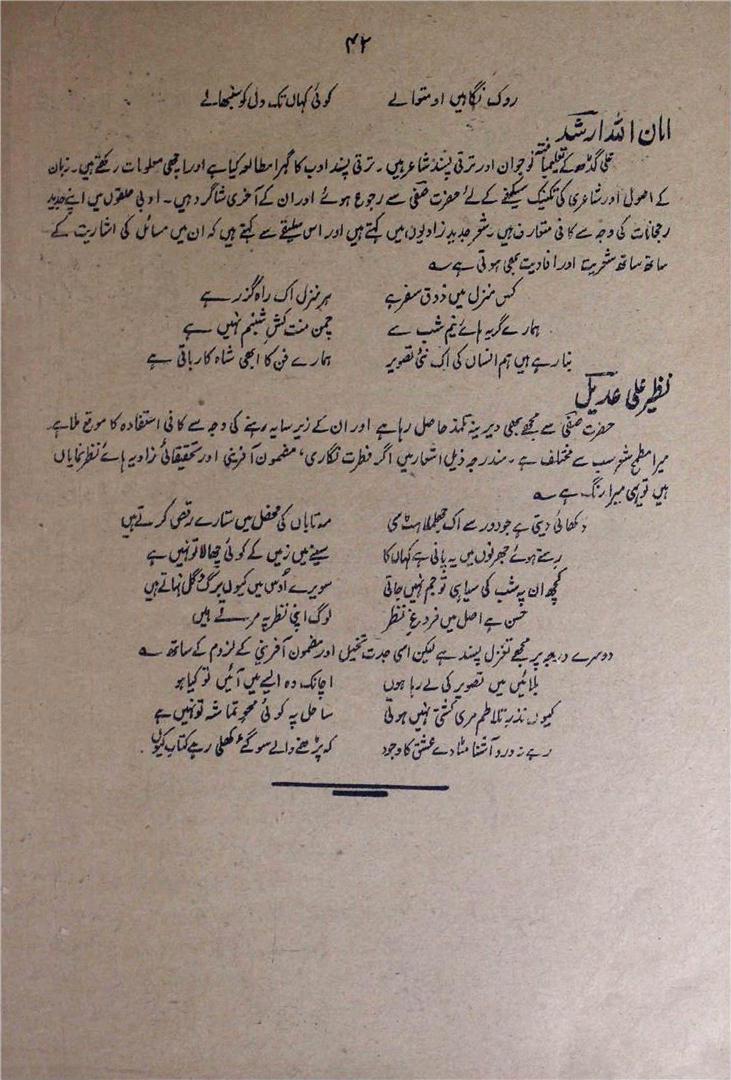 ۴۲
روک نگاہیں او متوالے کوئی کہاں تک دل کو سنبھالے
امان اللہ ارشد
علی گڈھ کے تعلیمیافتہ نوجوان اور ترقی پسند شاعر ہیں۔ ترقی پسند ادب کا گہرا مطالعہ کیا ہے اور اچھی معلومات رکھتے ہیں۔ زبان
کے اصول اور شاعری کی تکنیک سیکھنے کے لئے حضرت صفی سے رجوع ہوئے اور ان کے آخری شاگرد ہیں۔ ادبی حلقوں میں اپنے جدید
رجحانات کی وجہ سے کافی متعارف ہیں۔ شعر جدید زاویوں میں کہتے ہیں اور اس سلیقے سے کہتے ہیں کہ ان میں مسائل کی اشاریت کے
ساتھ ساتھ شعریت اور افادیت بھی ہوتی ہے ؎
کس منزل میں ذوق سفر ہے ہر منزل اک راہ گزر ہے
ہمارے گریہ ہائے نیم شب سے چمن منت کش شبنم نہیں ہے
بنا رہے ہیں ہم انساں کی اک نئی تصویر ہمارے فن کا ابھی شاہ کار باقی ہے
نظیر علی عدیل
حضرت صفی سے مجھے بھی دیرینہ تلمذ حاصل رہا ہے اور ان کے زیر سایہ رہنے کی وجہ سے کافی استفادہ کا موقع ملا ہے۔
میرا مطمح شعر سب سے مختلف ہے۔ مندرجہ ذیل اشعار میں اگر فطرت نگاری، مضمون آفرینی اور تحقیقاتی زاویہ ہائے نظر نمایاں
ہیں تو یہی میرا رنگ ہے ؎
دکھائی دیتی ہے جو دور سے اک جھلملاہٹ سی مہ تاباں کی محفل میں ستارے رقص کرتے ہیں
رستے ہوئے جھرنوں میں یہ پانی ہے کہاں کا سینے میں زمیں کے کوئی چھالا تو نہیں ہے
کچھ ان پہ شب کی سیاہی تو جم نہیں جاتی سویرے اوس میں کیوں برگ و گل نہاتے ہیں
حسن ہے اصل میں فروغ نظر لوگ اپنی نظر پہ مرتے ہیں
دوسرے درجہ پر مجھے تغزل پسند ہے لیکن اسی جدت تخیل اور مضمون آفرینی کے لزوم کے ساتھ ؎
بلائیں میں تصویر کی لے رہا ہوں اچانک وہ ایسے میں آئیں تو کیا ہو
کیوں نذر تلاطم مری کشتی نہیں ہوتی ساحل پہ کوئی محو تماشہ تو نہیں ہے
رہے نہ درد آشنا مٹا دے عشق کا وجود کہ پڑھنے والے سو گئے کھلی رہے کتاب کیوں